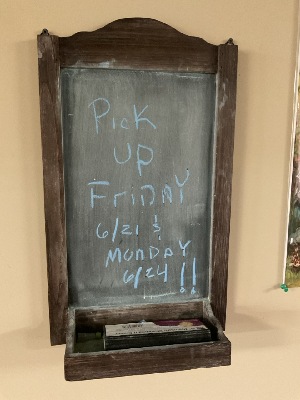 Pick
UP
FRIDAY
6/21 &
MONDAY
6/24 !!